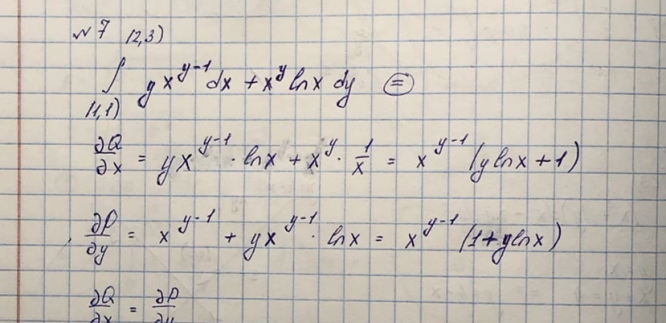 № 7 (2,3)
∫ y x^{y-1} dx + x^y ln x dy =
(1,1)
∂Q/∂x = y x^{y-1} · ln x + x^y · 1/x = x^{y-1} (y ln x + 1)
∂P/∂y = x^{y-1} + y x^{y-1} · ln x = x^{y-1} (1 + y ln x)
∂Q/∂x = ∂P/∂y